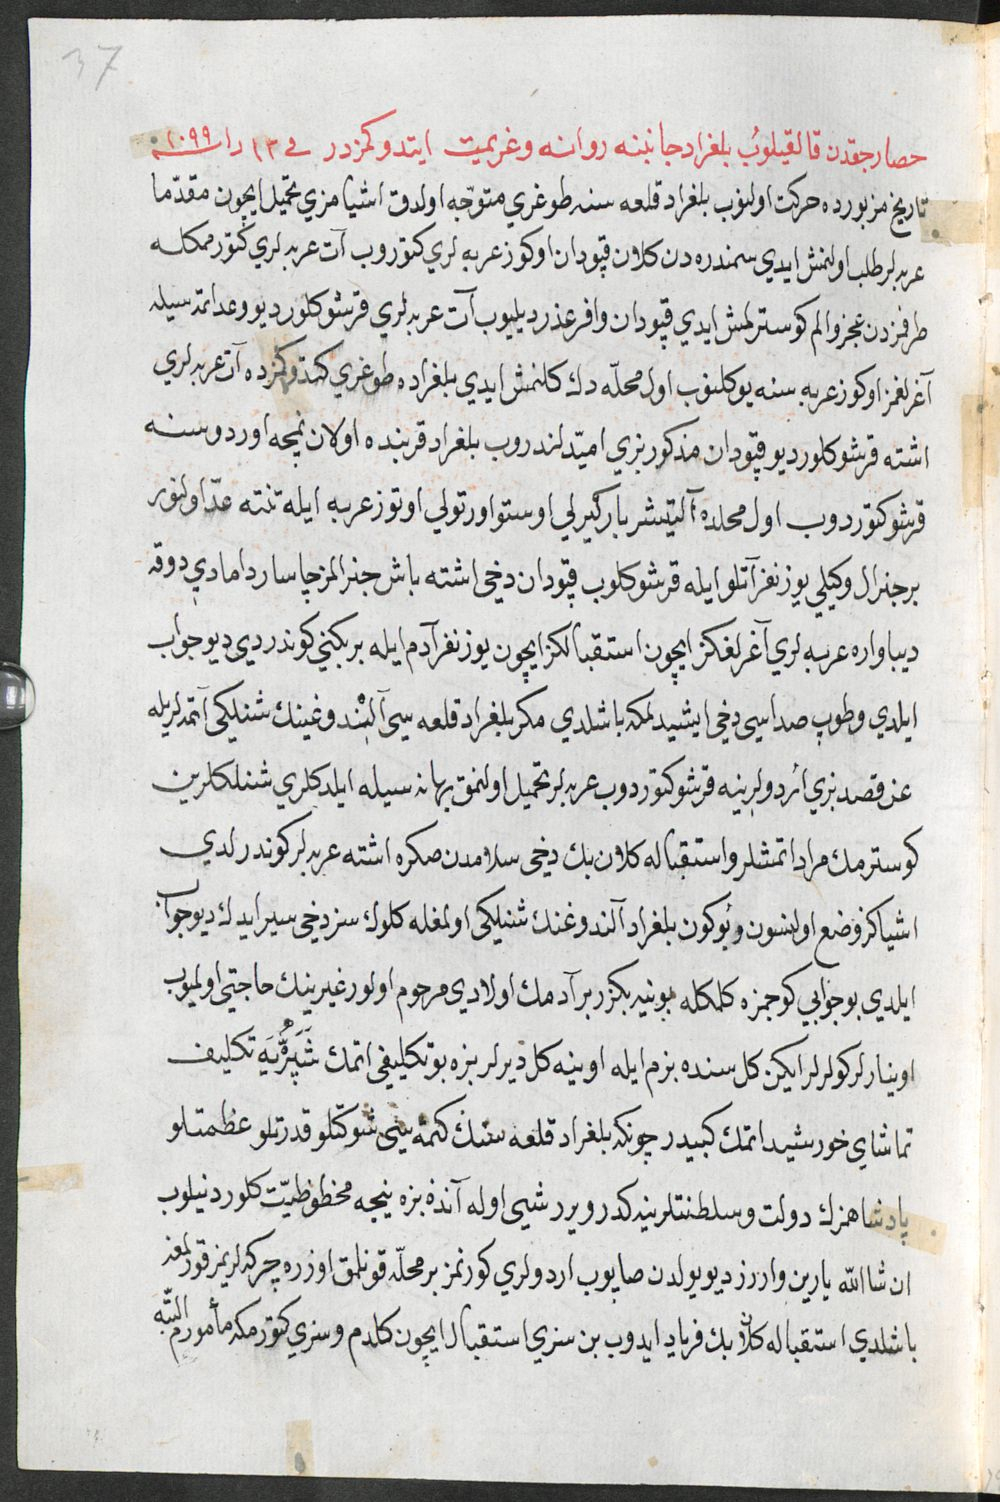 37
حصارجقدن قالقيلوب بلغراد جانبنه روانه وعزيمت ايتدوكمزدر فى ١٣ را سنه ١٠٩٩
تاريخ مزبورده حركت اولنوب بلغراد قلعه سنه طوغري متوجّه اولدق اشيامزي تحميل ايچون مقدّما
عربه لر طلب اولنمش ايدي سمندره دن كلان قپودان اوكوز عربه لري كتوروب آت عربه لري كتورمكله
طرفمزدن عجز والم كوسترلمش ايدي قپودان وافر عذر ديليوب آت عربه لري قرشو كلور ديو وعد اتمه سيله
آغرلغمز اوكوز عربه سنه يوكلنوب اول محلّه دك كلنمش ايدي بلغراده طوغري كتدوكمزده آت عربه لري
اشته قرشو كلور ديو قپودان مذكور بزي اميّدلندروب بلغراد قربنده اولان نيمچه اوردوسنه
قرشو كتوردوب اول محلده آلتيشر باركيرلي اوستو اورتولي اوتوز عربه ايله تنته عدّ اولنور
بر جنرال وكيلي يوز نفر آتلو ايله قرشو كلوب قپودان دخى اشته باش جنرالمز چاسار دامادي دوقه
ديباواره عربه لري آغرلغكز ايچون استقبالكز ايچون يوز نفر آدم ايله بر بكنى كوندردي ديو جواب
ايلدي وطوپ صداسى دخى ايشيدلمكه باشلدي مكر بلغراد قلعه سى آلندوغينك شنلكى آتمه لريله
عن قصد بزي اردولرينه قرشو كتوردوب عربه لر تحميل اولنمق بهانه سيله ايلدكلري شنلكلرين
كوسترمك مراد اتمشلر واستقباله كلان بك دخى سلامدن صكره اشته عربه لر كوندرلدي
اشياكز وضع اولنسون وبوكون بلغراد آلندوغنك شنليكى اولمغله كلوك سز دخى سير ايدك ديو جواب
ايلدي بو جوابي كوجمزه كلمكله بونيه بكزر بر آدمك اولادي مرحوم اولور غيرينك حاجتى اولميوب
اوينارلر كولرلر ايكن كل سنده بزم ايله اوينه كل ديرلر بزه بو تكليفى اتمك شپّرۀيه تكليف
تماشاي خورشيد اتمك كبيدر چونكه بلغراد قلعه سنك كتمه سى شوكتلو قدرتلو عظمتلو
پادشاهمزك دولت وسلطنتلرينه كدر ويرر شيى اوله آنده بزه نيجه محظوظيّت كلور دنيلوب
ان شا الله يارين وارز ديو يولدن صاپوب اردولري كورنمز بر محلّه قونلمق اوزره چركه لريمز قورلمغه
باشلدي استقباله كلان بك فرياد ايدوب بن سزي استقبال ايچون كلدم وسزي كتورمكه مأمورم البّته